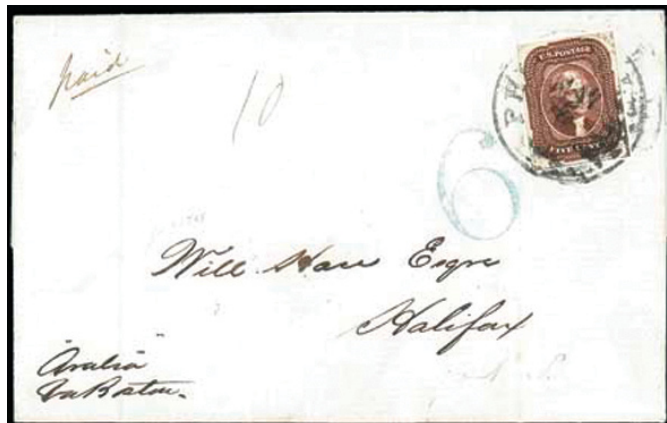 paid
10
U.S. POSTAGE
FIVE CENTS
6
Will Hare Esqre
Halifax
"Arabia"
Via Boston.